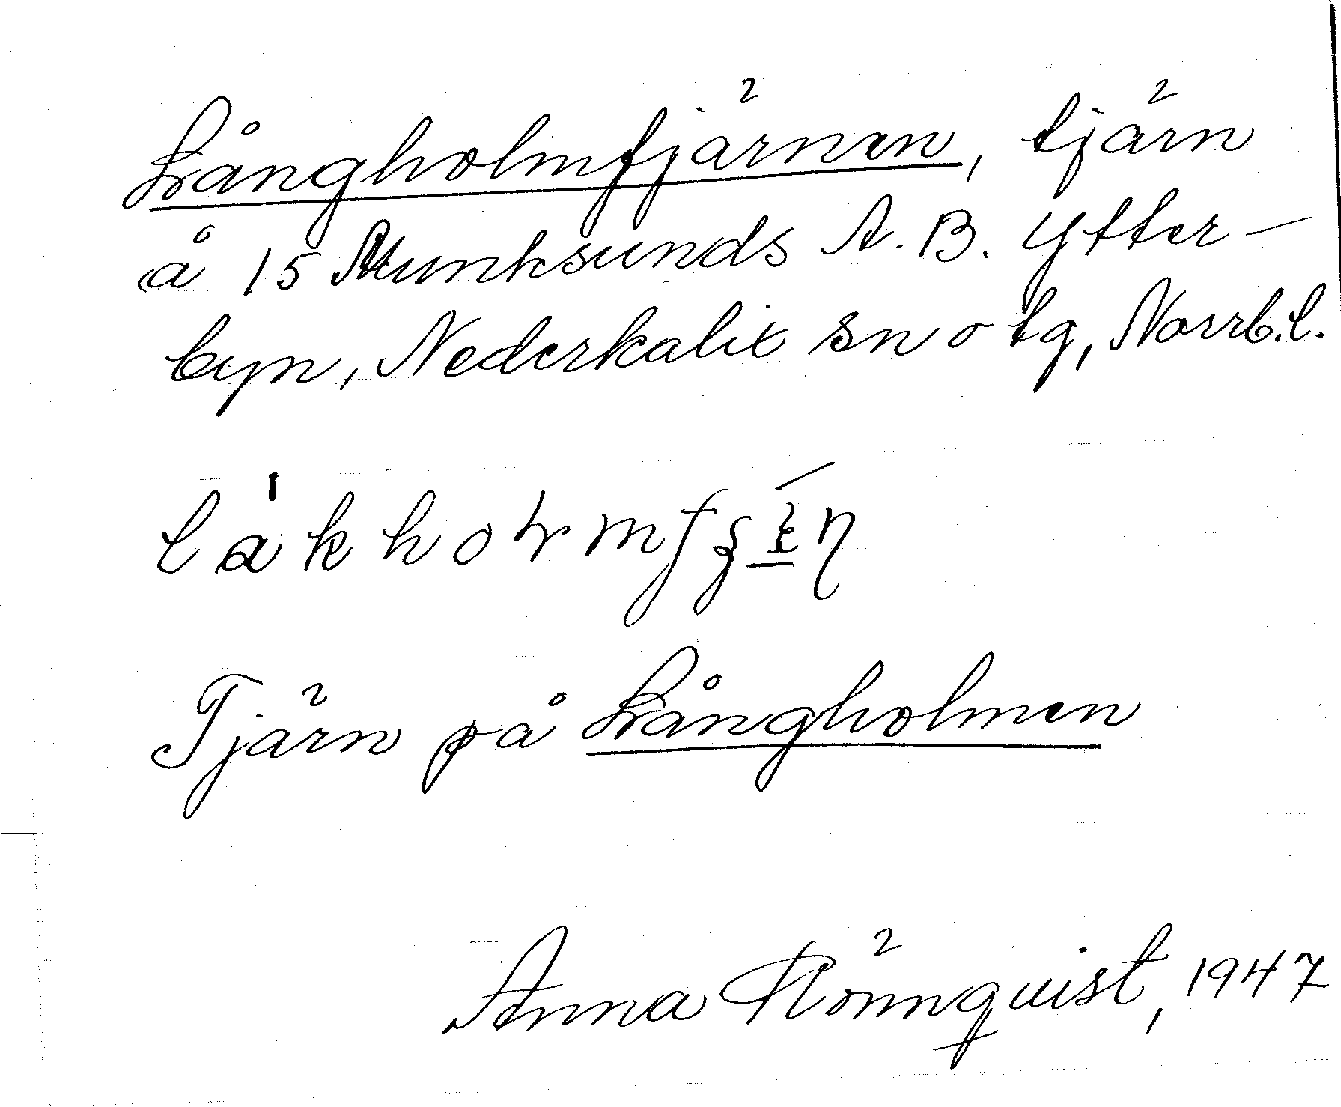 Långholmfjärnen, tjärn
å 15 Munksunds A. B. Ytter-
byn, Nederkalix sn o tg, Norrb. l.
Tjärn på Långholmen
Anna Rönnquist, 1947